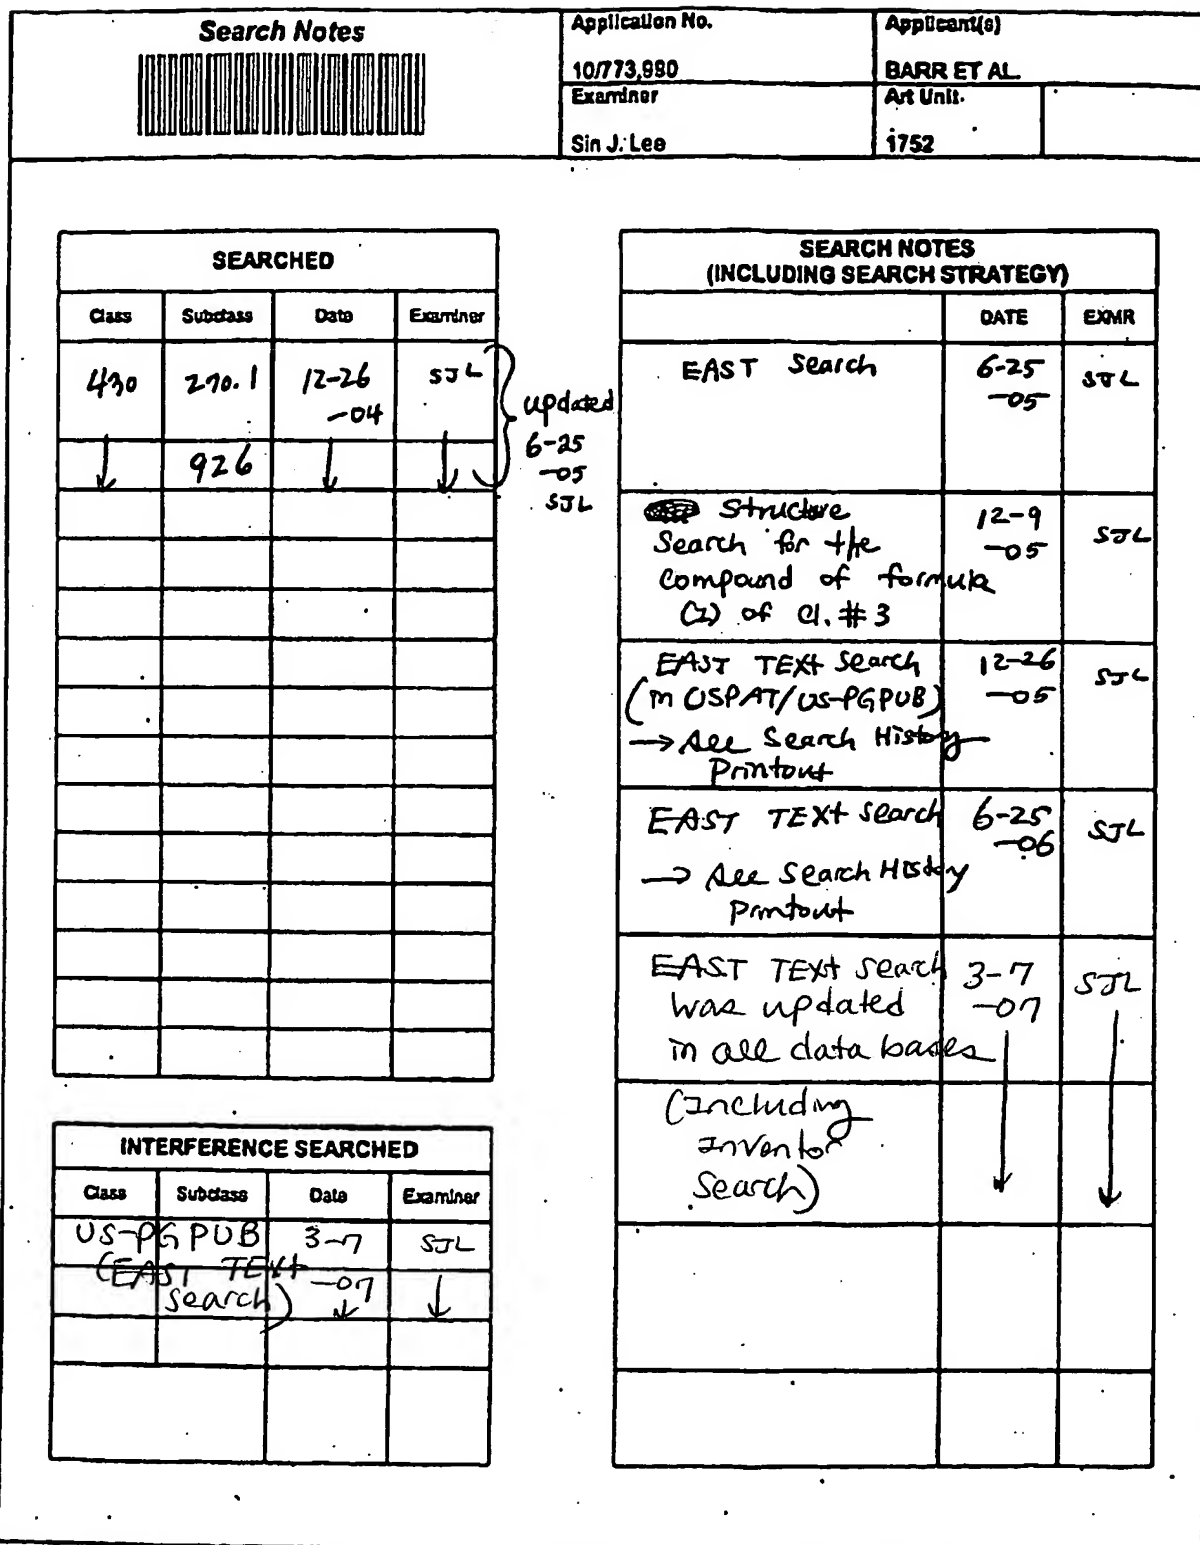 Search Notes
Application No.
10/773,990
Applicant(s)
BARR ET AL.
Examiner
Sin J. Lee
Art Unit
1752
SEARCHED
Class Subclass Date Examiner
430 270.1 12-26 SJL
-04
926
updated
6-25
-05
SJL
INTERFERENCE SEARCHED
Class Subclass Date Examiner
US-PGPUB 3-7 SJL
(EAST TEXt -07
search)
SEARCH NOTES
(INCLUDING SEARCH STRATEGY)
DATE EXMR
EAST Search 6-25 SJL
-05
Structure 12-9 SJL
Search for the -05
compound of formula
(I) of Cl. #3
EAST TEXt search 12-26 SJL
(in USPAT/US-PGPUB) -05
→ See Search History
Printout
EAST TEXt search 6-25 SJL
-06
→ See Search History
Printout
EAST TEXt search 3-7 SJL
was updated -07
in all data bases
(Including
Inventor
Search)